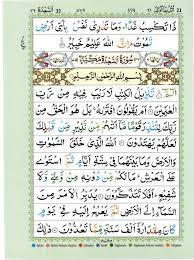 السجدة 32
اتل ما اوحى 21
ذَا تَكْسِبُ غَدًا وَمَا تَدْرِي نَفْسٌ بِأَيِّ أَرْضٍ
تَمُوتُ إِنَّ اللَّهَ عَلِيمٌ خَبِيرٌ
سُورَةُ السَّجْدَةِ مَكِّيَّةٌ
بِسْمِ اللَّهِ الرَّحْمَٰنِ الرَّحِيمِ
الٓمٓ تَنْزِيلُ الْكِتَٰبِ لَا رَيْبَ فِيهِ مِنْ رَبِّ
الْعَٰلَمِينَ أَمْ يَقُولُونَ افْتَرَىٰهُ بَلْ هُوَ الْحَقُّ مِنْ
رَبِّكَ لِتُنْذِرَ قَوْمًا مَا أَتَىٰهُمْ مِنْ نَذِيرٍ مِنْ قَبْلِكَ
لَعَلَّهُمْ يَهْتَدُونَ اللَّهُ الَّذِي خَلَقَ السَّمَٰوَٰتِ وَ
الْأَرْضَ وَمَا بَيْنَهُمَا فِي سِتَّةِ أَيَّامٍ ثُمَّ اسْتَوَىٰ عَلَى
الْعَرْشِ مَا لَكُمْ مِنْ دُونِهِ مِنْ وَلِيٍّ وَلَا
شَفِيعٍ أَفَلَا تَتَذَكَّرُونَ يُدَبِّرُ الْأَمْرَ مِنَ
السَّمَاءِ إِلَى الْأَرْضِ ثُمَّ يَعْرُجُ إِلَيْهِ فِي يَوْمٍ
كَانَ مِقْدَارُهُ أَلْفَ سَنَةٍ مِمَّا تَعُدُّونَ